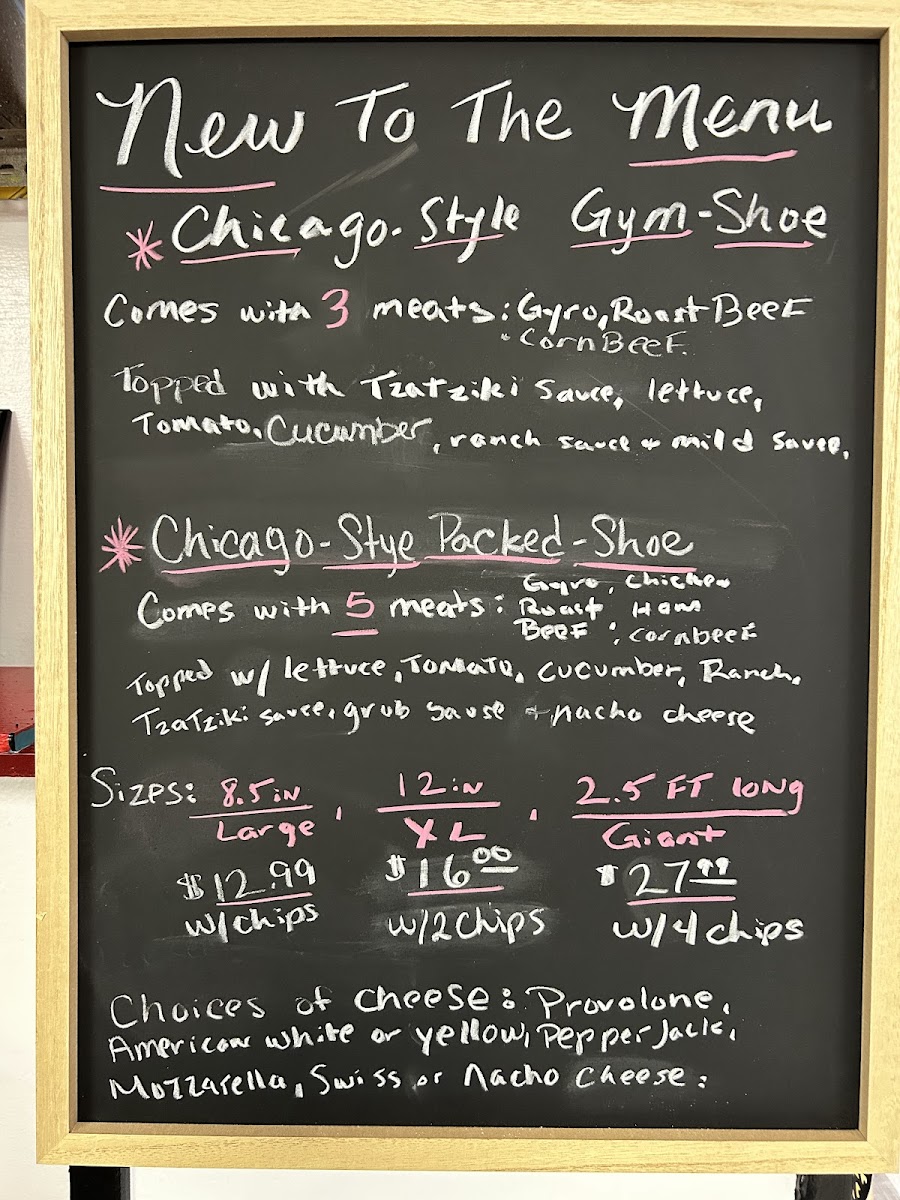 New To The Menu
* Chicago-Style Gym-Shoe
Comes with 3 meats: Gyro, Roast Beef
+ Corn Beef.
Topped with Tzatziki sauce, lettuce,
Tomato, Cucumber, ranch sauce + mild sauce.
* Chicago-Stye Packed-Shoe
Comes with 5 meats: Gyro, Chicken
Roast, Ham
Beef, cornbeef
Topped w/ lettuce, Tomato, cucumber, Ranch,
Tzatziki sauce, grub sause + nacho cheese
Sizes: 8.5 in, 12 in, 2.5 FT long
Large XL Giant
$12.99 $16.00 $27.99
w/chips w/2 chips w/4 chips
Choices of cheese: Provolone,
American white or yellow, Pepper Jack,
Mozzarella, Swiss or Nacho Cheese.